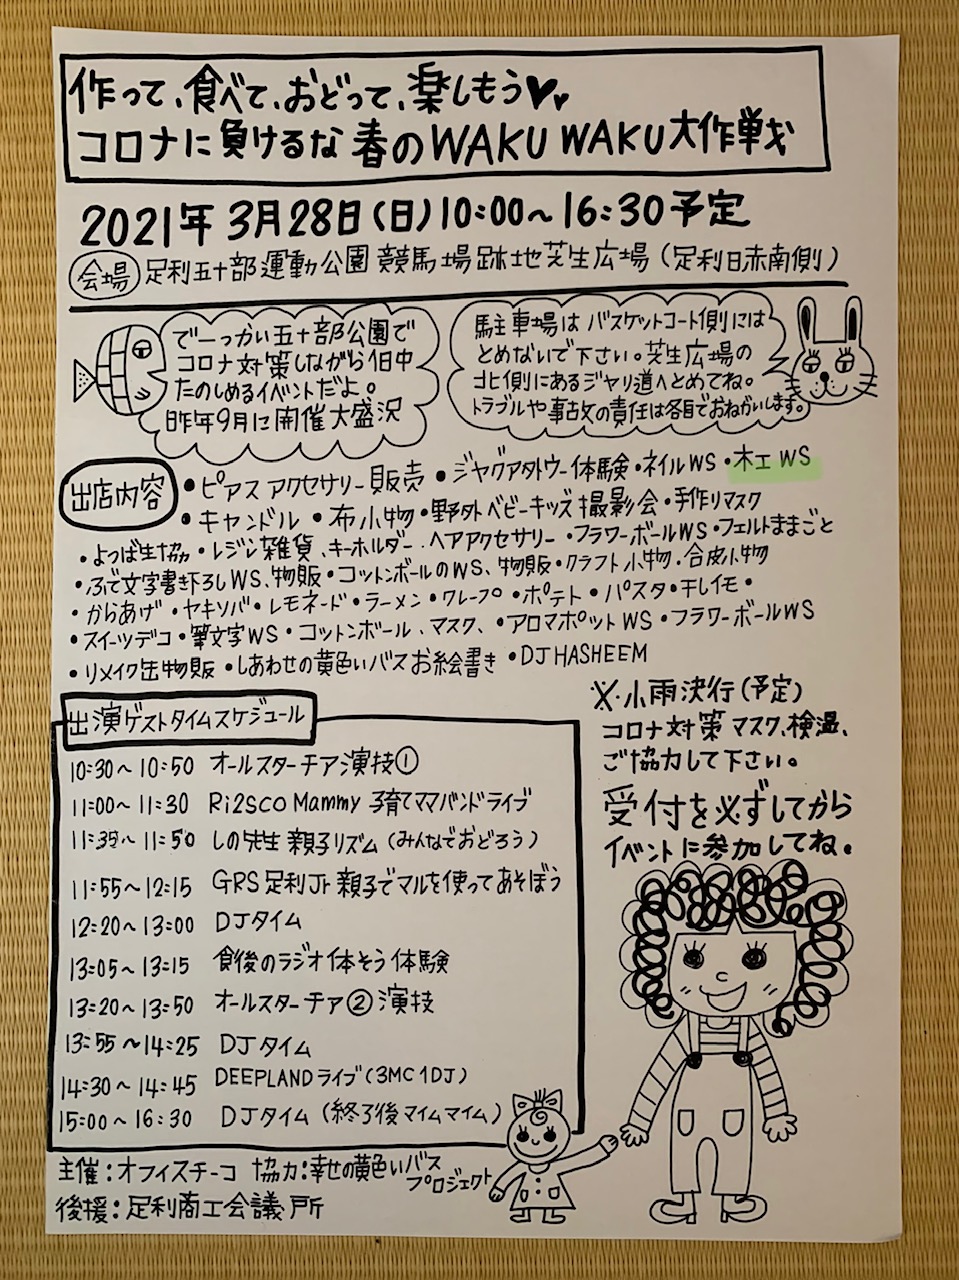 作って、食べて、おどって、楽しもう♥♥
コロナに負けるな 春のWAKU WAKU大作戦
2021年 3月28日(日)10:00〜16:30予定
会場 足利五十部運動公園 競馬場跡地芝生広場(足利日赤南側)
でーっかい五十部公園で
コロナ対策しながら1日中
たのしめるイベントだよ。
昨年9月に開催大盛況
駐車場はバスケットコート側には
とめないで下さい。芝生広場の
北側にあるジャリ道へとめてね。
トラブルや事故の責任は各自でおねがいします。
出店内容 ・ピアスアクセサリー販売 ・ジャグアタトゥー体験・ネイルWS・木工WS
・キャンドル ・布小物・野外ベビーキッズ撮影会・手作りマスク
・よつば生協・レジン雑貨、キーホルダー、ヘアアクセサリー・フラワーボールWS・フェルトままごと
・ふで文字書き下ろしWS、物販・コットンボールのWS、物販・クラフト小物・合皮小物
・からあげ・ヤキソバ・レモネード・ラーメン・クレープ・ポテト・パスタ・干しイモ・
・スイーツデコ・筆文字WS・コットンボール、マスク、・アロマポットWS・フラワーボールWS
・リメイク缶物販・しあわせの黄色いバスお絵書き・DJ HASHEEM
※・小雨決行(予定)
コロナ対策 マスク、検温、
ご協力して下さい。
受付を必ずしてから
イベントに参加してね。
出演ゲストタイムスケジュール
10:30〜10:50 オールスターチア演技①
11:00〜11:30 Ri2SCO Mammy 子育てママバンドライブ
11:35〜11:50 しの先生 親子リズム(みんなでおどろう)
11:55〜12:15 GRS足利Jr 親子でマルを使ってあそぼう
12:20〜13:00 DJタイム
13:05〜13:15 食後のラジオ体そう体験
13:20〜13:50 オールスターチア②演技
13:55〜14:25 DJタイム
14:30〜14:45 DEEPLANDライブ(3MC1DJ)
15:00〜16:30 DJタイム(終了後マイムマイム)
主催:オフィスチーコ 協力:幸せの黄色いバス
プロジェクト
後援:足利商工会議所